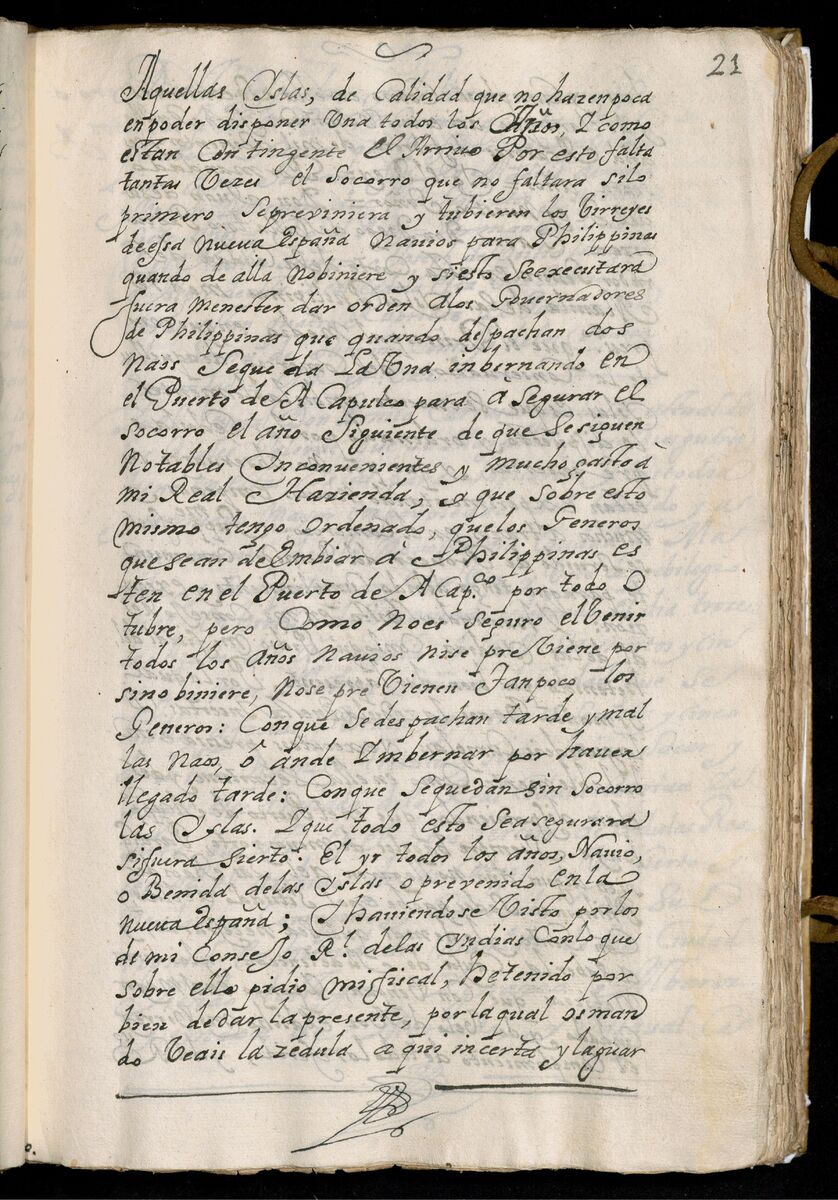 21
Aquellas Yslas, de Calidad que no hazen poca
en poder disponer Una todos los Años, Y como
estan Contingente El Arrivo Por esto falta
tantas Vezes el Socorro que no faltara silo
primero Sepreviniera y tubieren los Virreyes
de essa Nueva España Navios para Philippinas
quando de alla Nobiniere y siesto Seexecutara
fuera menester dar orden alos Governadores
de Philippinas que quando despachan dos
Naos Seque da La Una inbernando en
el Puerto de A Capulco para à segurar el
Socorro el año Siguiente de que Sesiguen
Notables Ynconvenientes y mucho gasto à
mi Real Hazienda, y que sobre esto
mismo tengo ordenado, quelos Generos
que sean de Embiar à Philippinas es
ten en el Puerto de A Cap.co por todo O
tubre, pero Como Noes seguro el Venir
todos los años Navios nise pre Viene por
sino biniere, Nose pre Vienen Tanpoco los
Generos: Conque Sedespachan tarde y mal
las Naos, ô ànde Ymbernar por haver
llegado tarde: Conque Sequedan sin Socorro
las Yslas. Yque todo esto Seasegurara
sifuera Sierto. El yr todos los años, Navio,
o Benida delas Yslas o prevenido en la
Nueva España; Y haviendose Visto por los
de mi Consejo R.l delas Yndias Conlo que
sobre ello pidio mi fiscal, he tenido por
bien de dar la presente, por la qual os man
do Veais la zedula a qui incerta y la guar